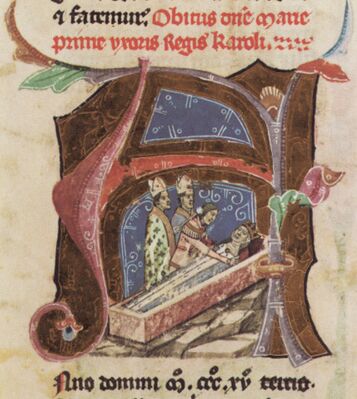 ⁊ facimus. Obitus dñe Marie
prime vxoris Regis Karoli.
Anno domini M. ccc. xv tercio.